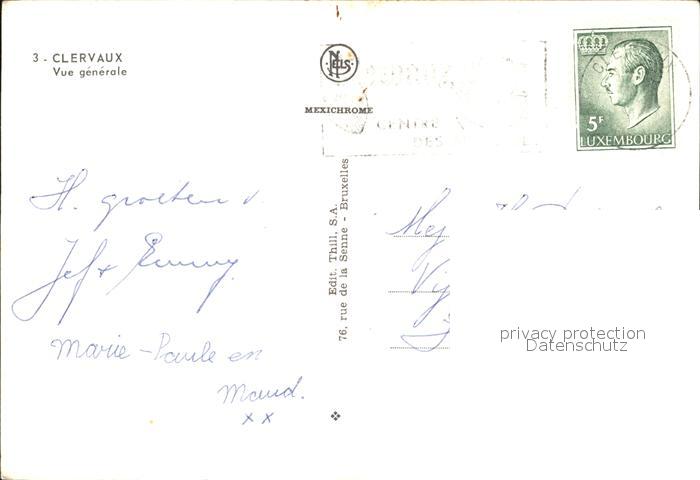 3 - CLERVAUX
Vue générale
NELS
MEXICHROME
CENTRE
DES
5F
LUXEMBOURG
Edit. Thill, S.A.
76, rue de la Senne - Bruxelles
H. groeten v.
Jef + Emmy
Marie-Paule en
Maud.
x x
Mej
privacy protection
Datenschutz